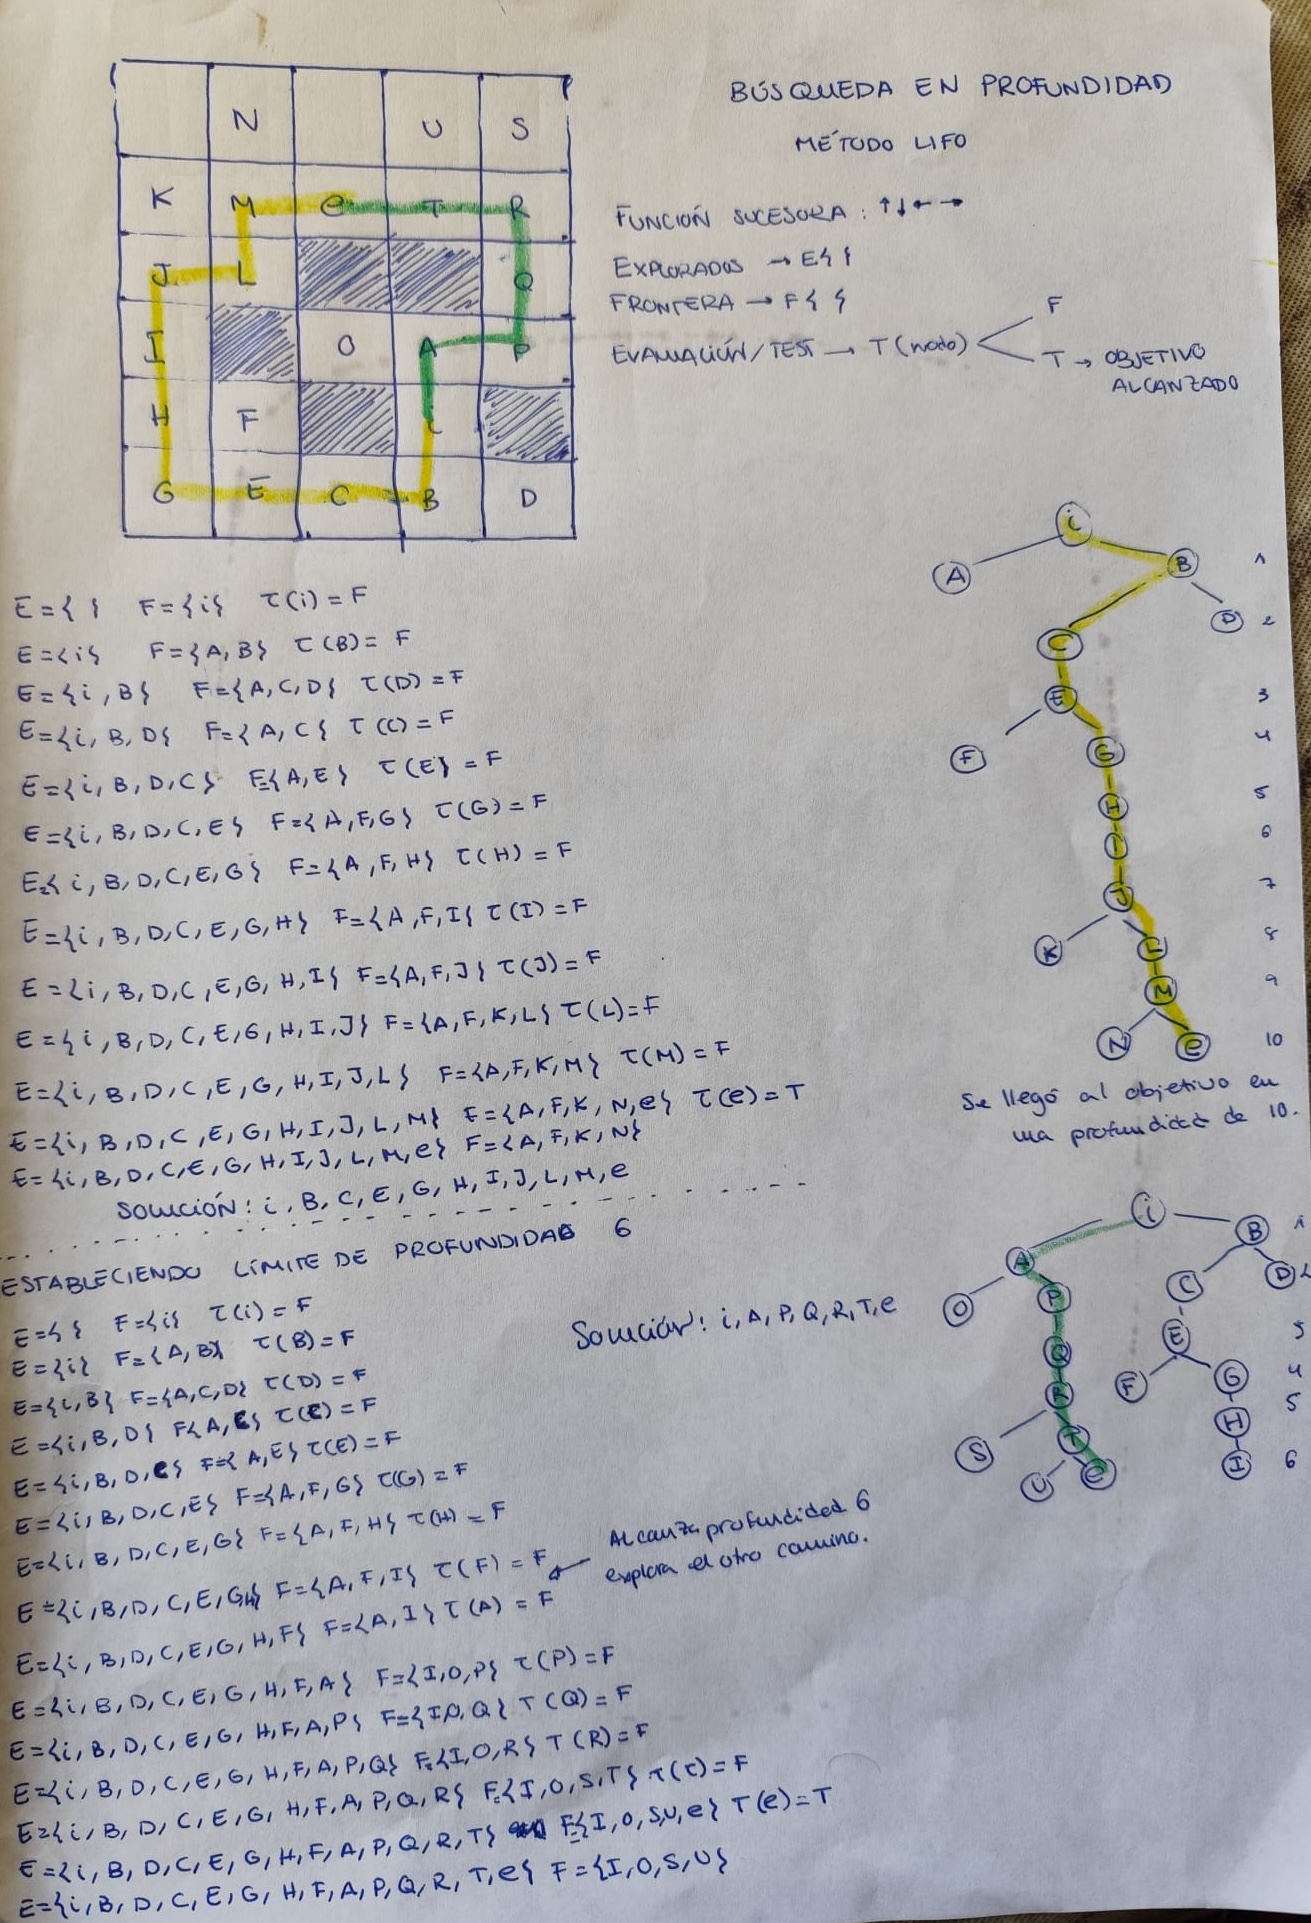 BÚSQUEDA EN PROFUNDIDAD
MÉTODO LIFO
N U S
K M e T R
J L Q
I O A P
H F i
G E C B D
FUNCIÓN SUCESORA : ↑↓←→
EXPLORADOS → E{ }
FRONTERA → F{ }
EVALUACIÓN/TEST → T(nodo)
F
T → OBJETIVO
ALCANZADO
E={ } F={i} T(i)=F
E={i} F={A,B} T(B)=F
E={i,B} F={A,C,D} T(D)=F
E={i,B,D} F={A,C} T(C)=F
E={i,B,D,C} F={A,E} T(E}=F
E={i,B,D,C,E} F={A,F,G} T(G)=F
E={i,B,D,C,E,G} F={A,F,H} T(H)=F
E={i,B,D,C,E,G,H} F={A,F,I} T(I)=F
E={i,B,D,C,E,G,H,I} F={A,F,J} T(J)=F
E={i,B,D,C,E,G,H,I,J} F={A,F,K,L} T(L)=F
E={i,B,D,C,E,G,H,I,J,L} F={A,F,K,M} T(M)=F
E={i,B,D,C,E,G,H,I,J,L,M} F={A,F,K,N,e} T(e)=T
E={i,B,D,C,E,G,H,I,J,L,M,e} F={A,F,K,N}
SOLUCIÓN: i,B,C,E,G,H,I,J,L,M,e
i
A B 1
D 2
C
E 3
F G 4
H 5
I 6
J 7
K L 8
M 9
N e 10
Se llegó al objetivo en
una profundidad de 10.
ESTABLECIENDO LÍMITE DE PROFUNDIDAD 6
E={ } F={i} T(i)=F
E={i} F={A,B} T(B)=F
E={i,B} F={A,C,D} T(D)=F
E={i,B,D} F{A,C} T(C)=F
E={i,B,D,C} F={A,E} T(E)=F
E={i,B,D,C,E} F={A,F,G} T(G)=F
E={i,B,D,C,E,G} F={A,F,H} T(H)=F
E={i,B,D,C,E,G,H} F={A,F,I} T(F)=F ←
Alcanza profundidad 6
explora el otro camino.
E={i,B,D,C,E,G,H,F} F={A,I} T(A)=F
E={i,B,D,C,E,G,H,F,A} F={I,O,P} T(P)=F
E={i,B,D,C,E,G,H,F,A,P} F={I,O,Q} T(Q)=F
E={i,B,D,C,E,G,H,F,A,P,Q} F={I,O,R} T(R)=F
E={i,B,D,C,E,G,H,F,A,P,Q,R} F={I,O,S,T} T(T)=F
E={i,B,D,C,E,G,H,F,A,P,Q,R,T} F={I,O,S,U,e} T(e)=T
E={i,B,D,C,E,G,H,F,A,P,Q,R,T,e} F={I,O,S,U}
Solución: i,A,P,Q,R,T,e
i
A B 1
O P C D 2
Q E 3
R F G 4
S T H 5
U e I 6